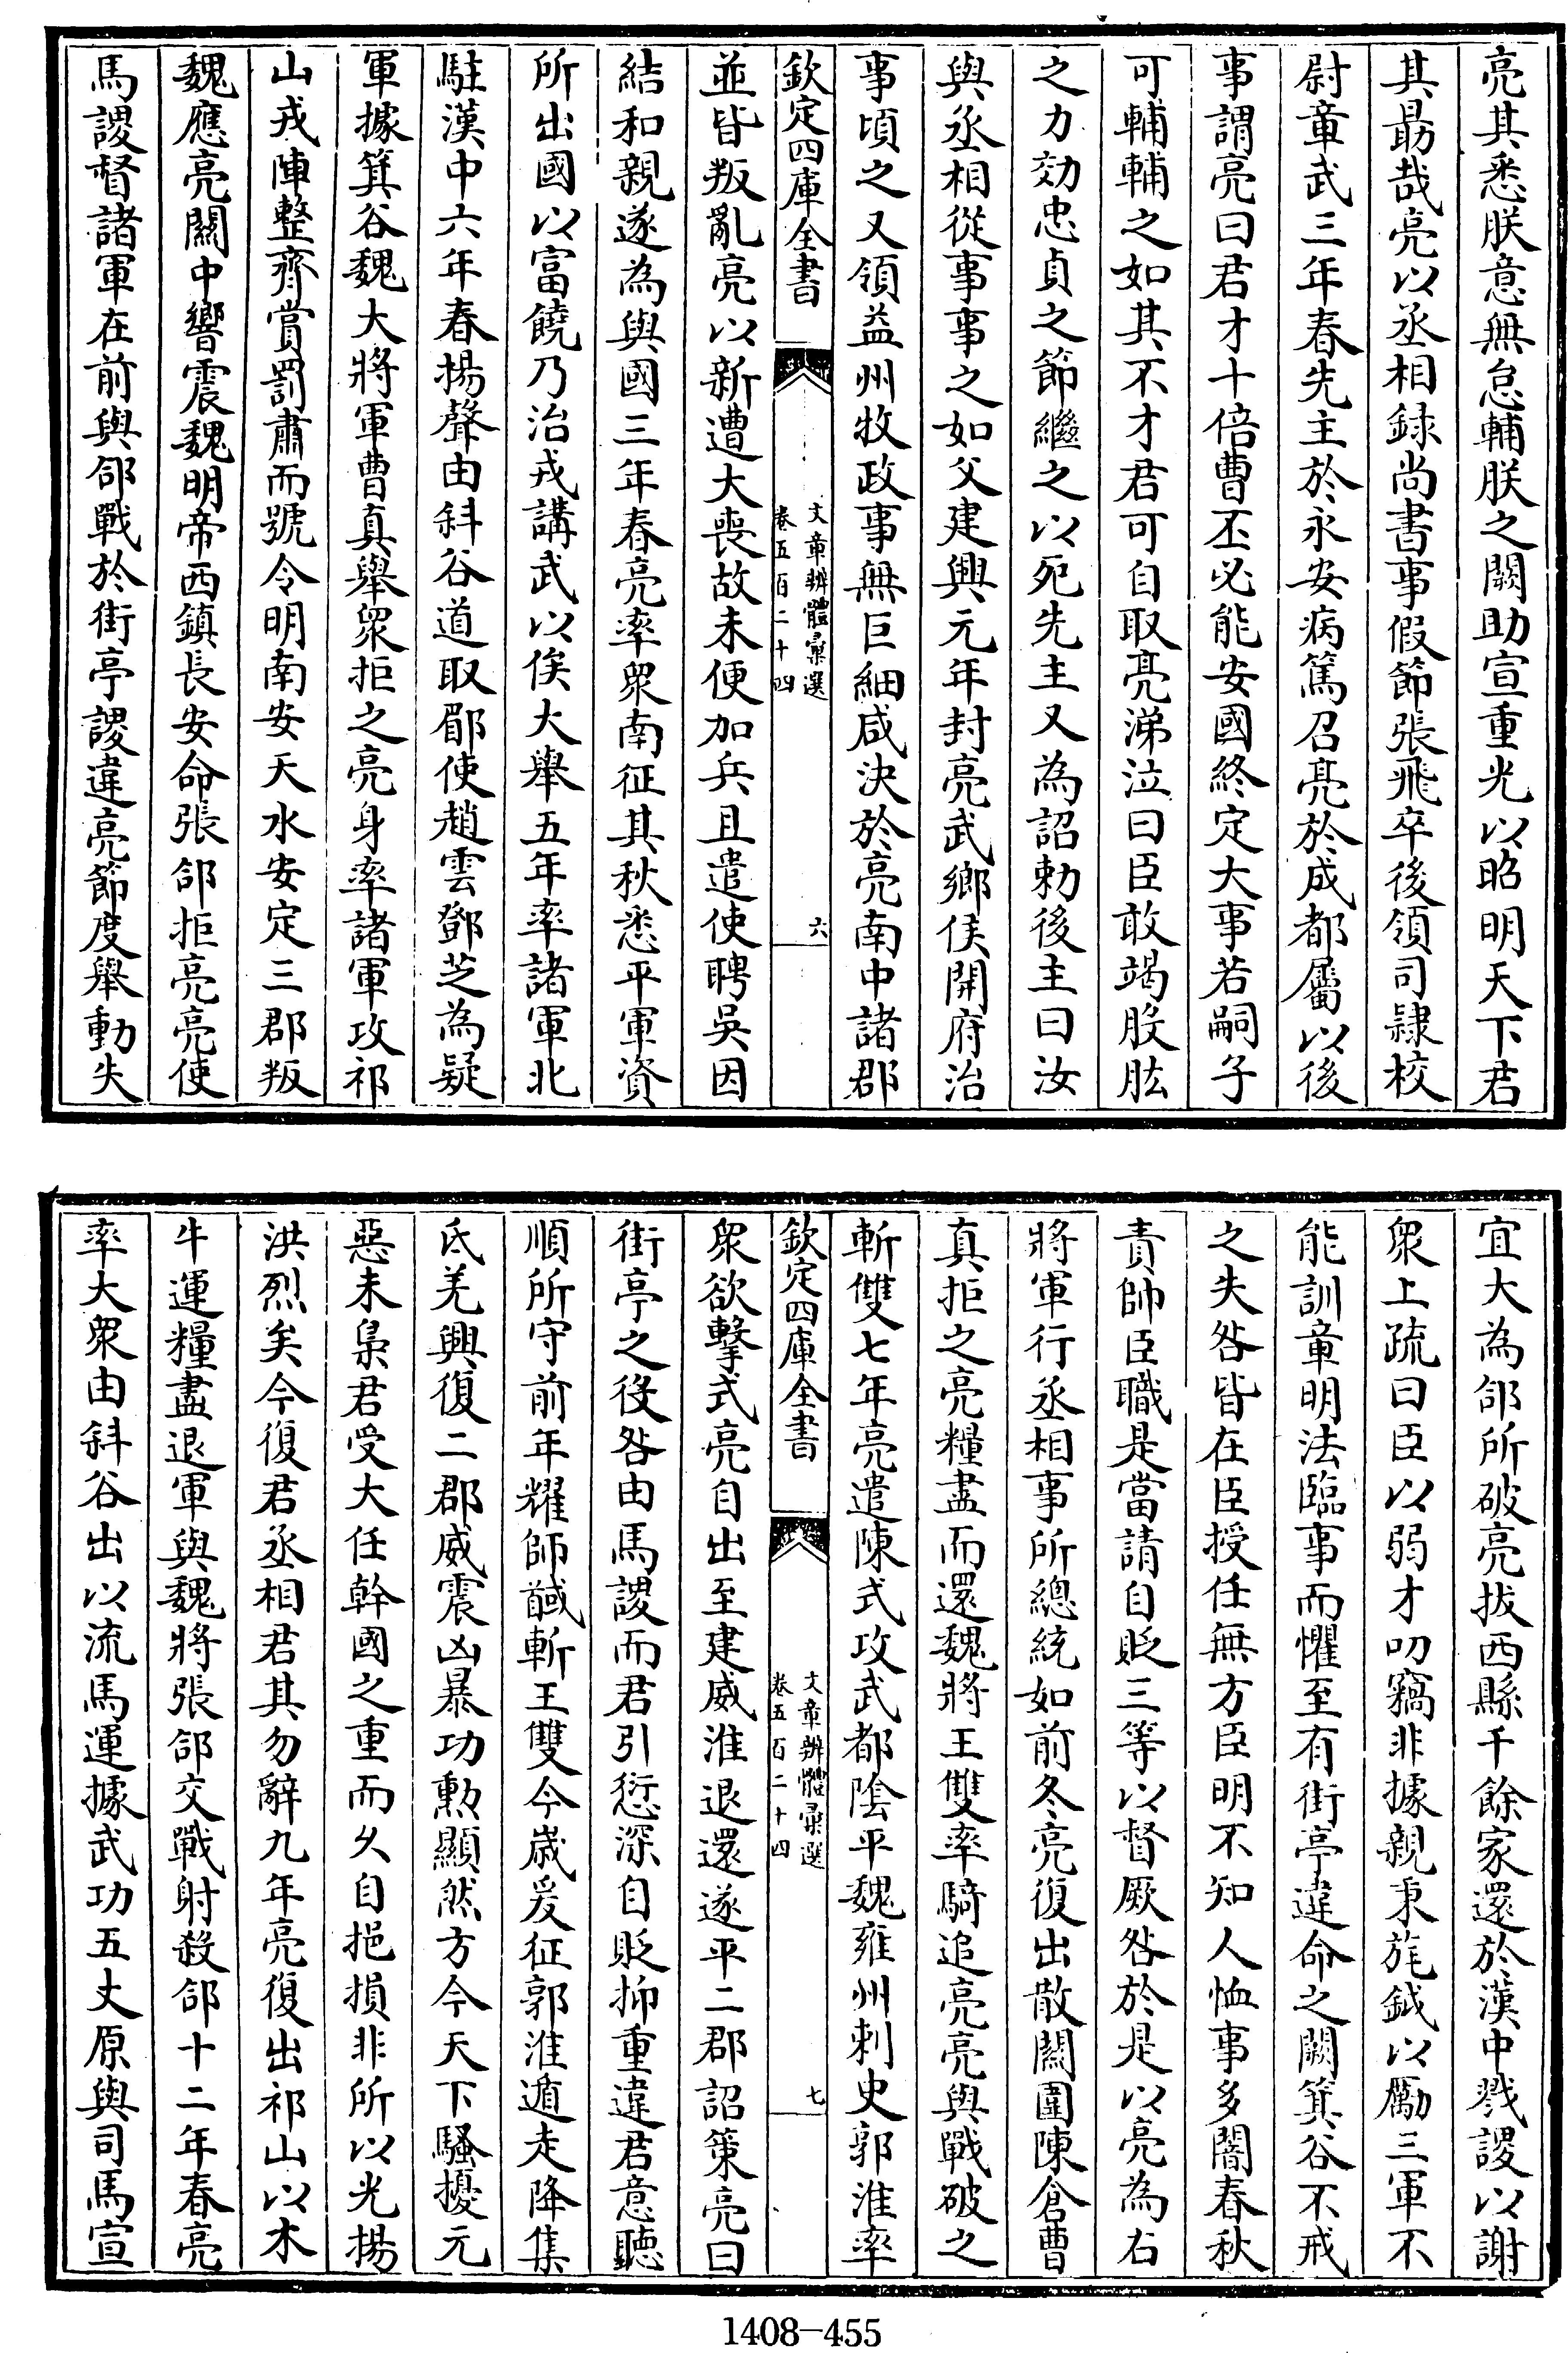 亮其悉朕意無怠輔朕之闕助宣重光以昭明天下君
其勗哉亮以丞相録尚書事假節張飛卒後領司隸校
尉章武三年春先主於永安病篤召亮於成都屬以後
事謂亮曰君才十倍曹丕必能安國終定大事若嗣子
可輔輔之如其不才君可自取亮涕泣曰臣敢竭股肱
之力効忠貞之節繼之以死先主又為詔勅後主曰汝
與丞相從事事之如父建興元年封亮武鄉侯開府治
事頃之又領益州牧政事無巨細咸決於亮南中諸郡
欽定四庫全書
文章辨體彙選
卷五百二十四
六
並皆叛亂亮以新遭大喪故未便加兵且遣使聘吳因
結和親遂為與國三年春亮率衆南征其秋悉平軍資
所出國以富饒乃治戎講武以俟大舉五年率諸軍北
駐漢中六年春揚聲由斜谷道取郿使趙雲鄧芝為疑
軍據箕谷魏大將軍曹真舉衆拒之亮身率諸軍攻祁
山戎陣整齊賞罰肅而號令明南安天水安定三郡叛
魏應亮關中響震魏明帝西鎮長安命張郃拒亮亮使
馬謖督諸軍在前與郃戰於街亭謖違亮節度舉動失
宜大為郃所破亮拔西縣千餘家還於漢中戮謖以謝
衆上疏曰臣以弱才叨竊非據親秉旄鉞以勵三軍不
能訓章明法臨事而懼至有街亭違命之闕箕谷不戒
之失咎皆在臣授任無方臣明不知人恤事多闇春秋
責帥臣職是當請自貶三等以督厥咎於是以亮為右
將軍行丞相事所總統如前冬亮復出散關圍陳倉曹
真拒之亮糧盡而還魏將王雙率騎追亮亮與戰破之
斬雙七年亮遣陳式攻武都陰平魏雍州刺史郭淮率
欽定四庫全書
文章辨體彙選
卷五百二十四
七
衆欲擊式亮自出至建威淮退還遂平二郡詔策亮曰
街亭之役咎由馬謖而君引愆深自貶抑重違君意聽
順所守前年耀師馘斬王雙今歲爰征郭淮遁走降集
氐羌興復二郡威震凶暴功勲顯然方今天下騷擾元
惡未梟君受大任幹國之重而久自挹損非所以光揚
洪烈矣今復君丞相君其勿辭九年亮復出祁山以木
牛運糧盡退軍與魏將張郃交戰射殺郃十二年春亮
率大衆由斜谷出以流馬運據武功五丈原與司馬宣
1408-455